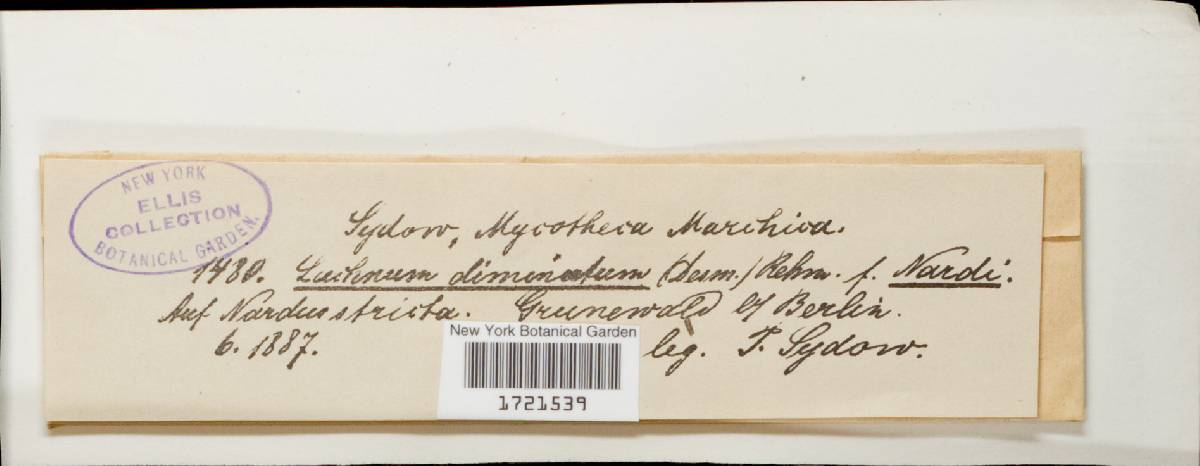 NEW YORK
ELLIS
COLLECTION
BOTANICAL GARDEN.
Sydow, Mycotheca Marchica.
1480. Lachnum diminutum (Desm.) Rehm. f. Nardi.
Auf Nardus stricta. Grunewald b/ Berlin.
6. 1887. leg. P. Sydow.
New York Botanical Garden
1721539